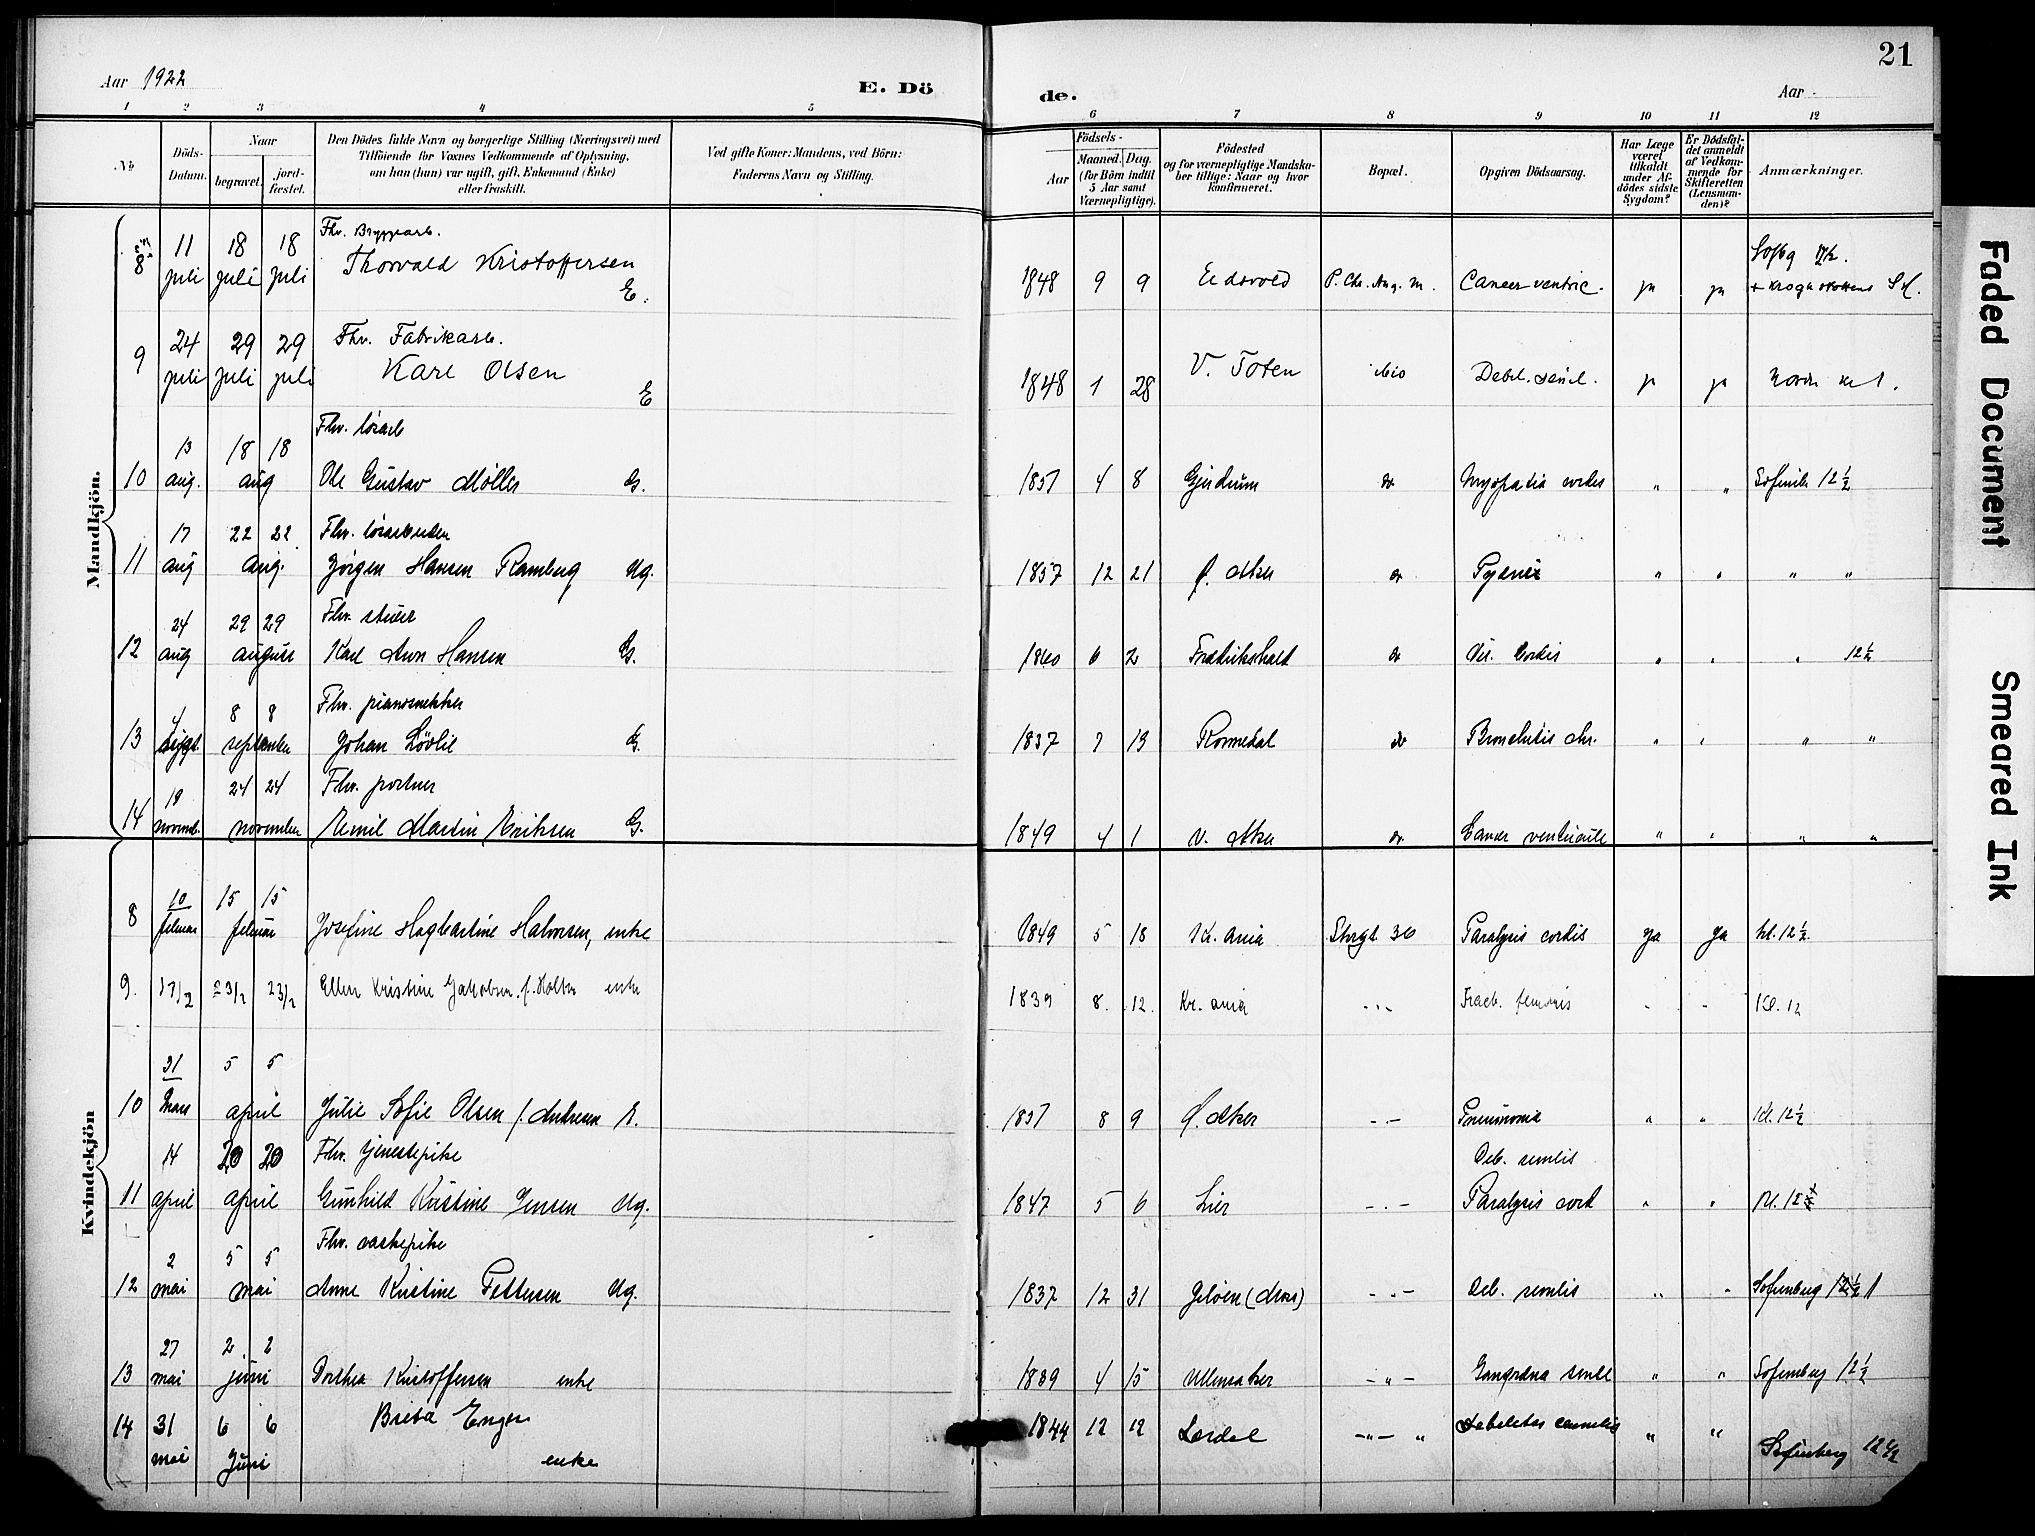 Aar 1922
E. Dö
de.
Aar
21
1 2 3 4 5 6 7 8 9 10 11 12
No
Döds-Datum.
Naar begravet. jordfæstet.
Den Dödes fulde Navn og borgerlige Stilling (Næringsvei) med
Tilföiende for Voxnes Vedkommende af Oplysning,
om han (hun) var ugift, gift, Enkemand (Enke)
eller fraskilt.
Ved gifte Koner: Mandens, ved Börn:
Faderens Navn og Stilling.
Födsels-
Aar Maaned. Dag.
(for Börn indtil 5 Aar samt Værnepligtige).
Födested
og for værnepligtige Mandskaber tillige: Naar og hvor konfirmeret.
Bopæl.
Opgiven Dödsaarsag.
Har Læge været tilkaldt under Afdödes sidste Sygdom?
Er Dödsfaldet anmeldt af Vedkommende for Skifteretten (Lensmanden)?
Anmærkninger.
Mandkjön.
Fhv. Bryggearb.
8 11 juli 18 juli 18 juli Thorvald Kristoffersen E. 1848 9 9 Eidsvold P. Chr. Aug. M. Cancer ventric. ja ja
Fhv. Fabrikarb.
9 24 juli 29 juli 29 juli Karl Olsen E 1848 1 28 V. Toten Debil. senil. ja ja
Fhv. løsarb
10 13 aug. 18 18 aug Ole Gustav Møller G. 1857 4 8 Gjerdrum do Myopatia cordis " "
Fhv. løsarbeider
11 17 aug 22 22 aug. Jørgen Hansen Ramberg Ug. 1857 12 21 Ø. Aker do " " " "
Fhv. stuer
12 24 aug 29 29 august Karl Hansen G. 1860 6 2 Fredrikshald do Vit. Cordis " " " 12½
Fhv. pianosnekker
13 4 sept. 8 8 september Johan Løvlie G. 1837 7 13 Romedal do Bronchitis chr. " " " "
Fhv. portner
14 19 novemb. 24 24 november Emil Martin Eriksen G. 1849 4 1 V. Aker do Cancer ventriculi " " " "
Kvindekjön
8 10 februar 15 15 februar Josefine Hagbartine Halvorsen, enke 1849 5 18 Kr.ania Storgt 36 Paralysis cordis Ja Ja kl. 12½.
9. 17/2 23/2 23/2 Ellen Kristine Jakobsen f. Holter enke 1839 8. 12. Kr.ania - " - Fract. femoris " " Kl. 12
10 31 Mars 5 5 april Julie Sofie Olsen f. Andresen E. 1857 8 9 Ø. Aker - " - Pneumonia " " Kl. 12½
Fhv. tjenestepike Deb. senilis
11 14 april 20 20 april Gunhild Kristine Jensen Ug. 1847 5 6 Lier - " - Paralysis cord " " Kl. 12½
Fhv. vaskepike
12 2 mai 5 5 mai Anne Kristine Pettersen Ug. 1837 12 31 Jeløen (Moss) - " - Deb. senilis " " Sofienberg 12½ 1
13 27 mai 2 2 juni Dorthea Kristoffersen enke 1839 4 15 Ullensaker - " - Gangræna senil " " Sofienberg 12½
14 31 mai 6 6 Juni Brita Enger enke 1844 12 12 Lærdal - " - " " " Sofienberg 12½
Faded Document
Smeared Ink